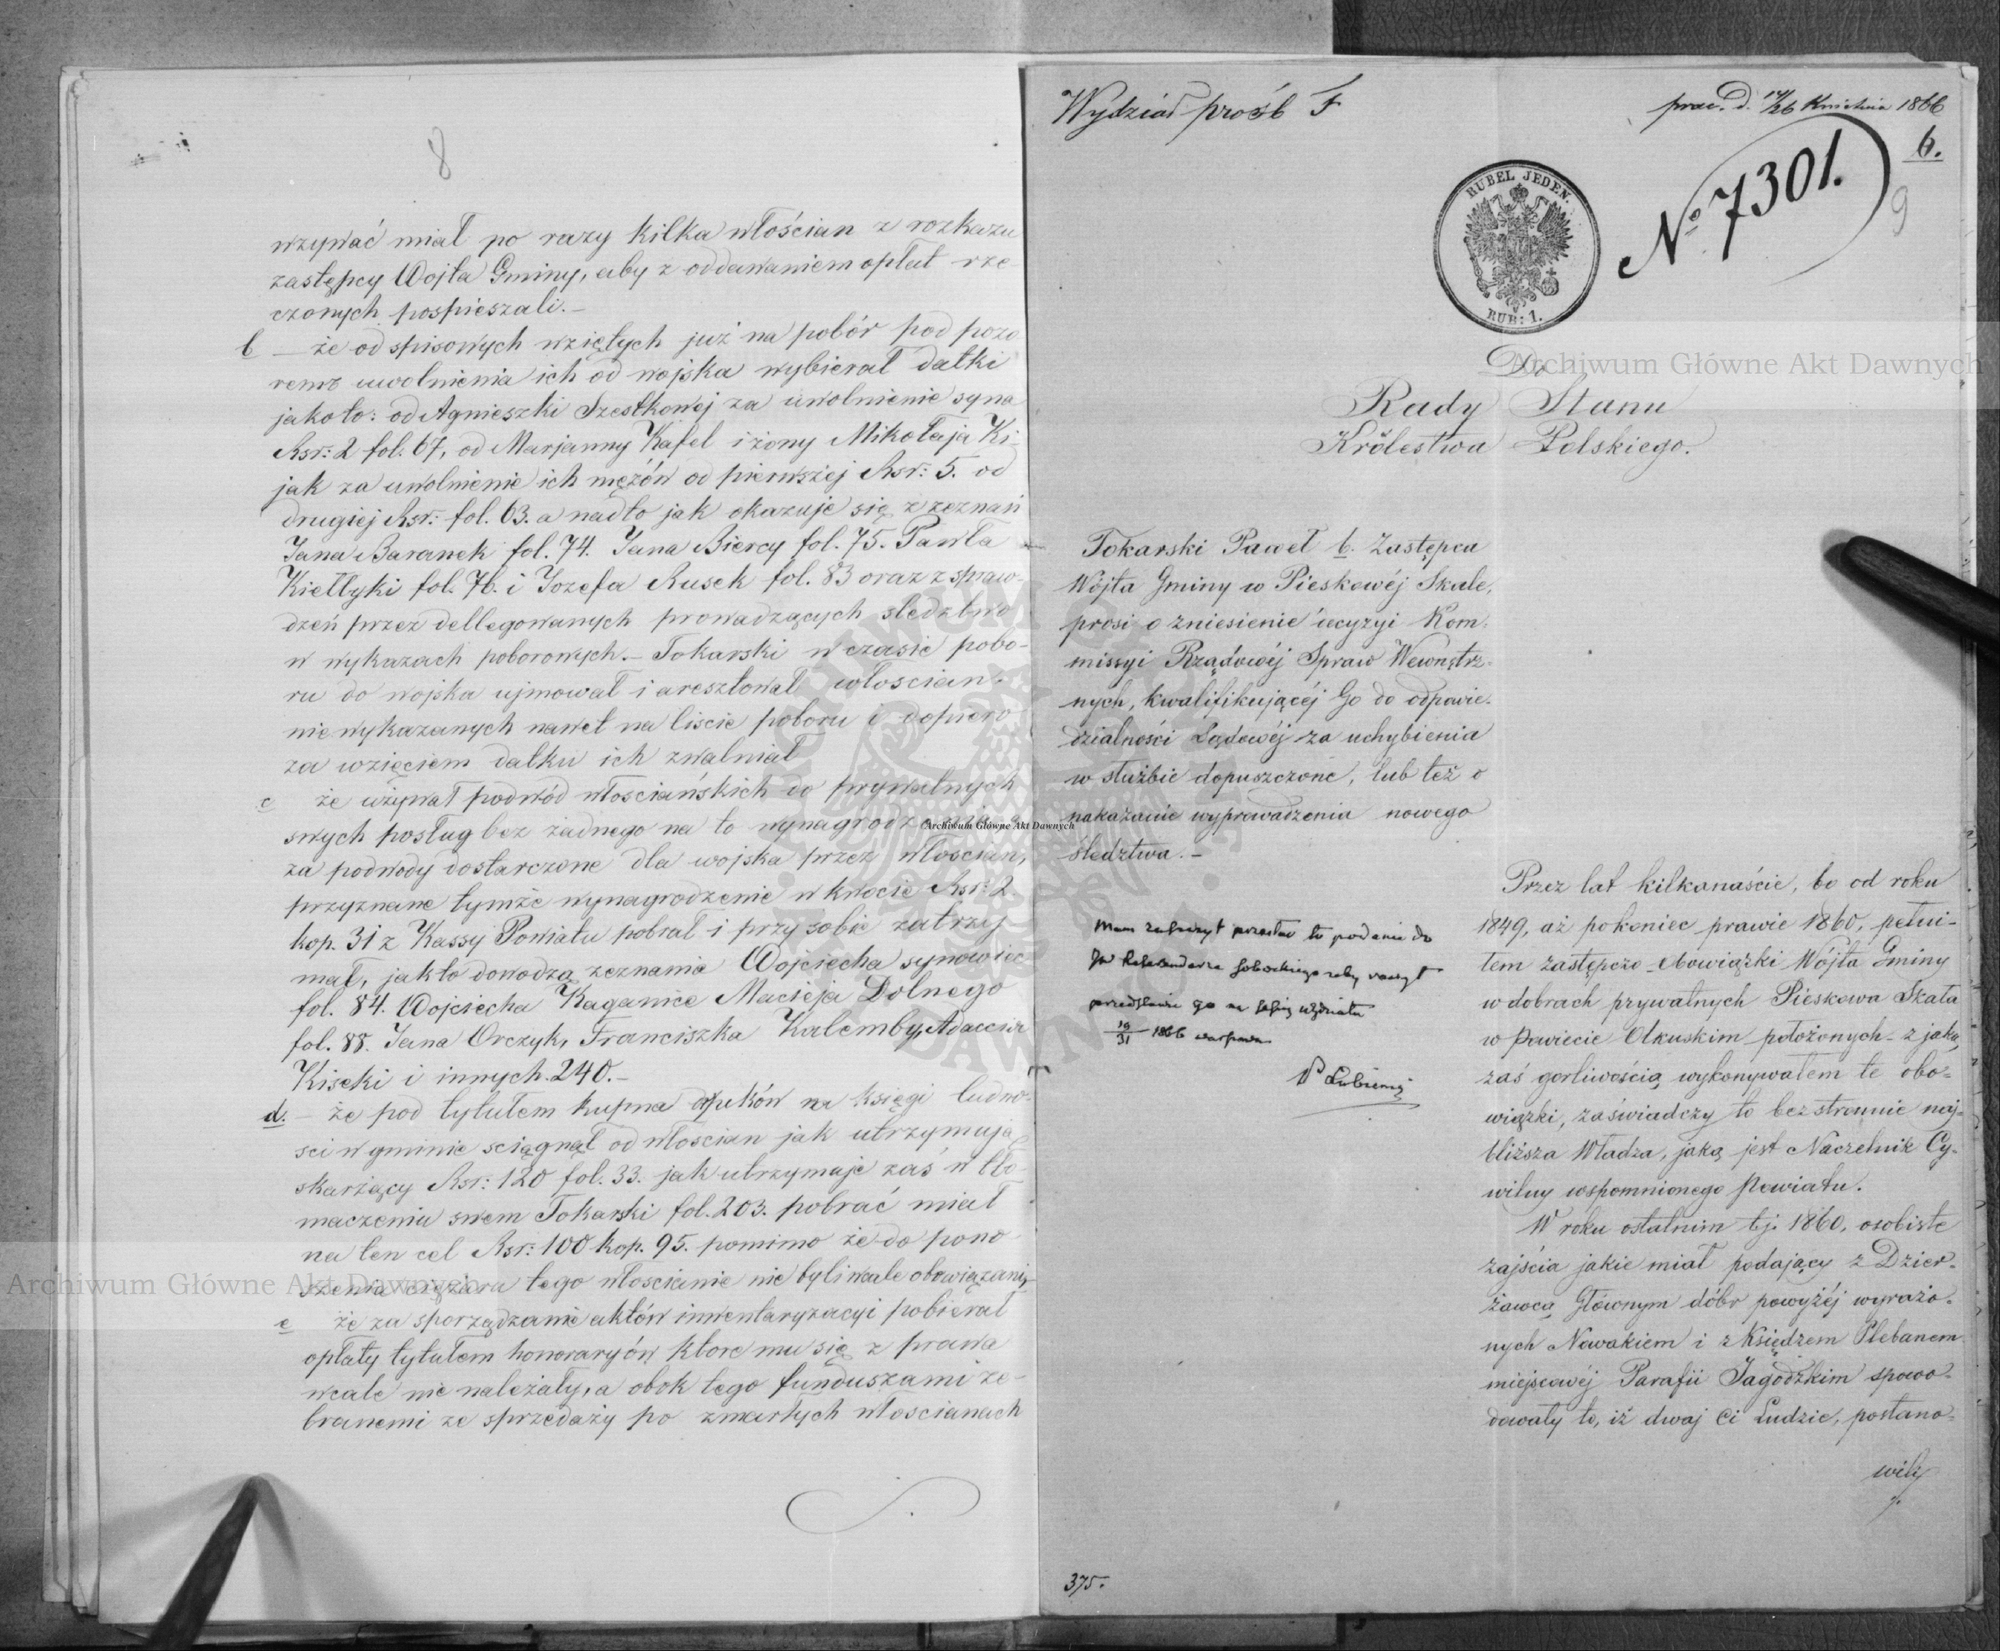 8
wzywać miał po razy kilka włościan z rozkazu
zastępcy Wójta Gminy, aby z oddawaniem opłat rze
czonych pospieszali. –
b – że od spisowych wziętych już na pobór pod pozo
rem uwolnienia ich od wojska wybierał datki
jako to: od Agnieszki Szestkowej za uwolnienie syna
Rsr: 2 fol. 67, od Marjanny Kafel i żony Mikołaja Ki
jak za uwolnienie ich mężów od pierwszej Rsr: 5. od
drugiej Rsr: fol. 63. a nadto jak okazuje się z zeznań
Jana Baranek fol. 74. Jana Biercy fol. 75. Pawła
Kiełtyki fol. 76. i Jozefa Rusek fol. 83 oraz z spraw-
dzeń przez dellegowanych prowadzących sledztwo
w wykazach poborowych. – Tokarski w czasie pobo-
ru do wojska ujmował i aresztował włoscian
nie wykazanych nawet na liscie poboru i dopiero
za wzięciem datku ich zwalniał
c że używał podwód włosciańskich do prywatnych
swych posług bez żadnego na to wynagrodzenia a
za podwody dostarczone dla wojska przez włoscian,
przyznane tymże wynagrodzenie w kwocie Rsr: 2
kop. 31 z Kassy Powiatu pobrał i przy sobie zatrzy
mał, jak to dowodzą zeznania Wojciecha synowiec
fol. 84. Wojciecha Kaganice Macieja Dolnego
fol. 88. Jana Orczyk, Franciszka Kalemby, Adama
Kiseki i innych. 240. –
d. – że pod tytułem kupna druków na księgi ludno-
sci w gminie sciągnął od włoscian jak utrzymują
skarżący Rsr: 120 fol. 33. jak utrzymuje zaś w tło-
maczeniu swem Tokarski fol. 203. pobrać miał
na ten cel Rsr: 100 kop. 95. pomimo że do pono
szenia ciężaru tego włoscianie nie byli wcale obowiązani,
e że za sporządzanie aktów inwentaryzacyi pobierał
opłaty tytułem honoraryów które mu się z prawa
wcale nie należały, a obok tego funduszami ze-
branemi ze sprzedaży po zmarłych włoscianach
Wydział próśb F
prac. d. 14/26 Kwietnia 1866
6.
No 7301.
9
RUBEL JEDEN.
RUB: 1.
Do
Rady Stanu
Królestwa Polskiego.
Tokarski Paweł b. Zastępca
Wójta Gminy w Pieskowéj Skale,
prosi o zniesienie decyzyi Kom-
missyi Rządowéj Spraw Wewnętrz-
nych, kwalifikującéj Go do odpowie-
dzialności Sądowéj za uchybienia
w służbie dopuszczone, lub też o
nakazanie wyprowadzenia nowego
śledztwa. –
Mam zaszczyt przesłać to podanie do
JW Referendarza aby raczył
przedstawić go na sesję wydziału
19/31 1866 Warszawa
P Łubieński
Przez lat kilkanaście, bo od roku
1849, aż pokoniec prawie 1860, pełni-
łem zastępczo obowiązki Wójta Gminy
w dobrach prywatnych Pieskowa Skała
w Powiecie Olkuskim położonych – z jaką
zaś gorliwością wykonywałem te obo-
wiązki, zaświadczy to bezstronnie naj-
bliższa Władza, jaką jest Naczelnik Cy-
wilny wspomnionego Powiatu.
W roku ostatnim tj. 1860, osobiste
zajścia jakie miał podający z Dzier-
żawcą Głównym dóbr powyżéj wyrażo-
nych Nowakiem i z Księdzem Plebanem
miejscowéj Parafii Jagodzkim spowo-
dowały to, iż dwaj Ci Ludzie, postano-
wili
375.
Archiwum Główne Akt Dawnych
Archiwum Główne Akt Dawnych
Archiwum Główne Akt Dawnych